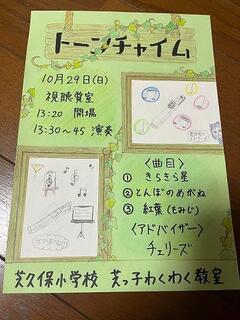 トーンチャイム
10月29日(日)
視聴覚室
13:20 開場
13:30〜45 演奏
〈曲目〉
① きらきら星
② とんぼのめがね
③ 紅葉(もみじ)
〈アドバイザー〉
チェリーズ
芝久保小学校 芝っ子わくわく教室